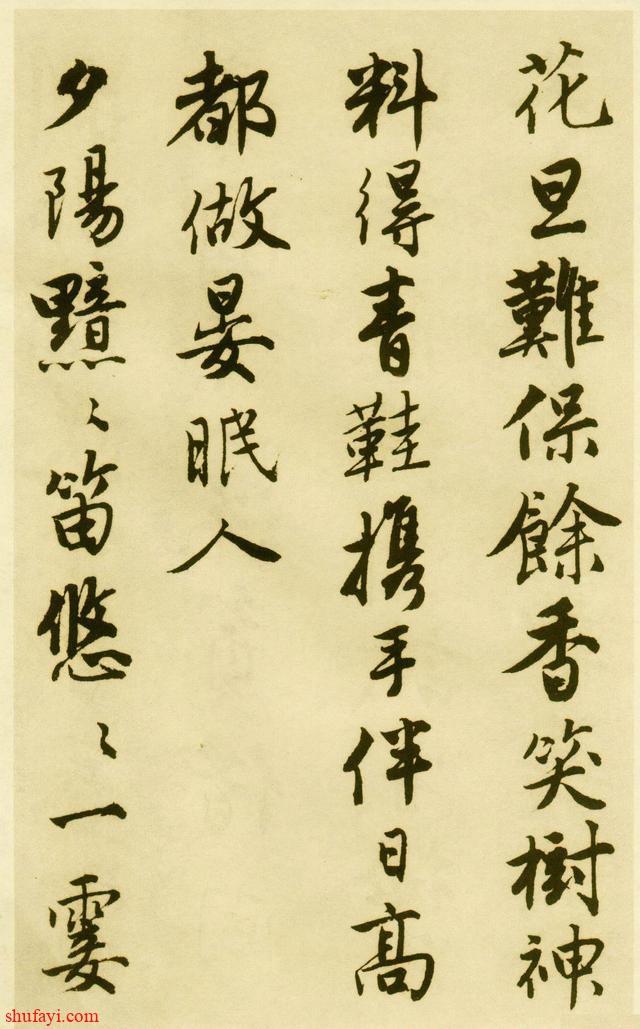 花且難保餘香笑樹神
料得青鞋携手伴日高
都做晏眠人
夕陽黯〻笛悠〻一霎
shufayi.com